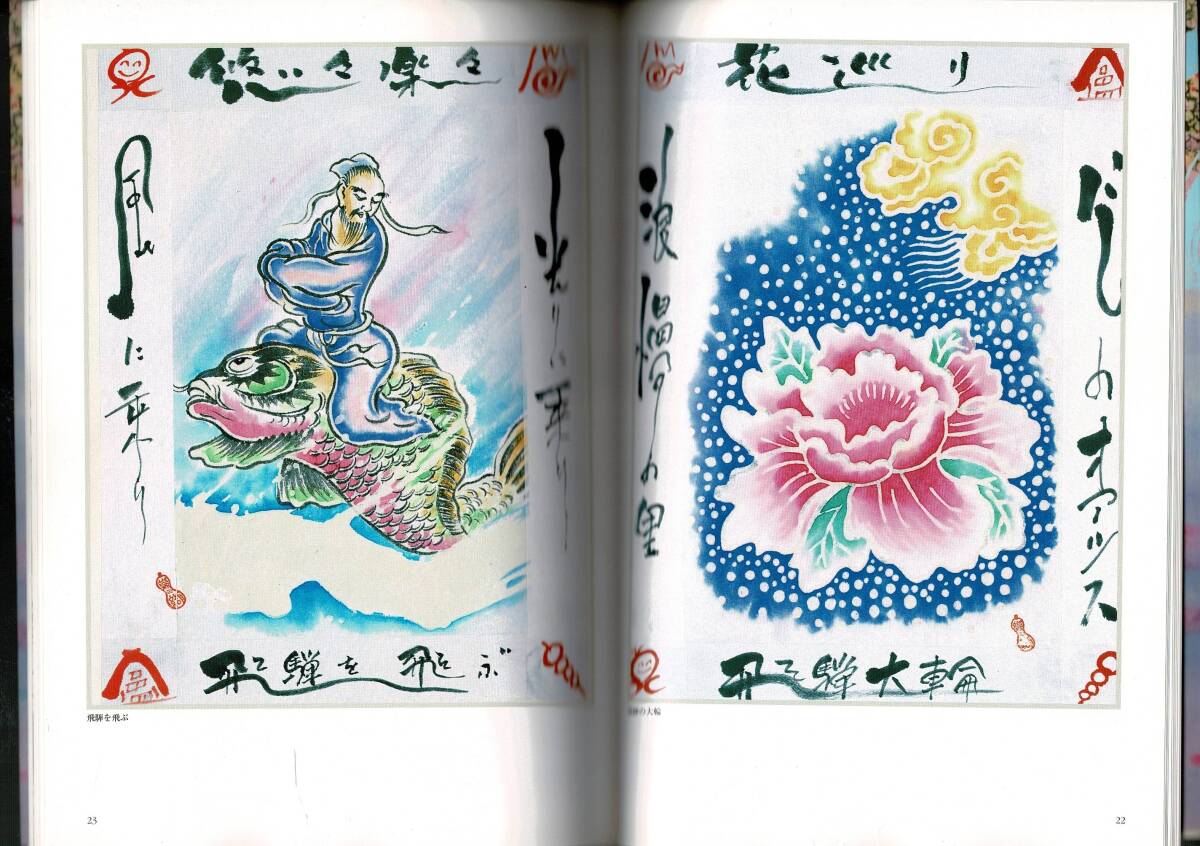 花巡り
のオアシス
浪漫の里
飛騨大輪
の大輪
22
悠々楽々
光りに乗り
風に乗り
飛騨を飛ぶ
飛騨を飛ぶ
23